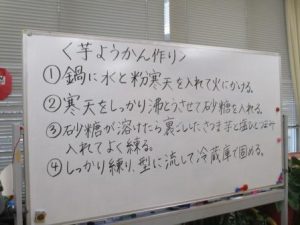 〈芋ようかん作り〉
①鍋に水と粉寒天を入れて火にかける。
②寒天をしっかり沸とうさせて砂糖を入れる。
③砂糖が溶けたら裏ごししたさつま芋と塩ひとつまみ
入れてよく練る。
④しっかり練り、型に流して冷蔵庫で固める。